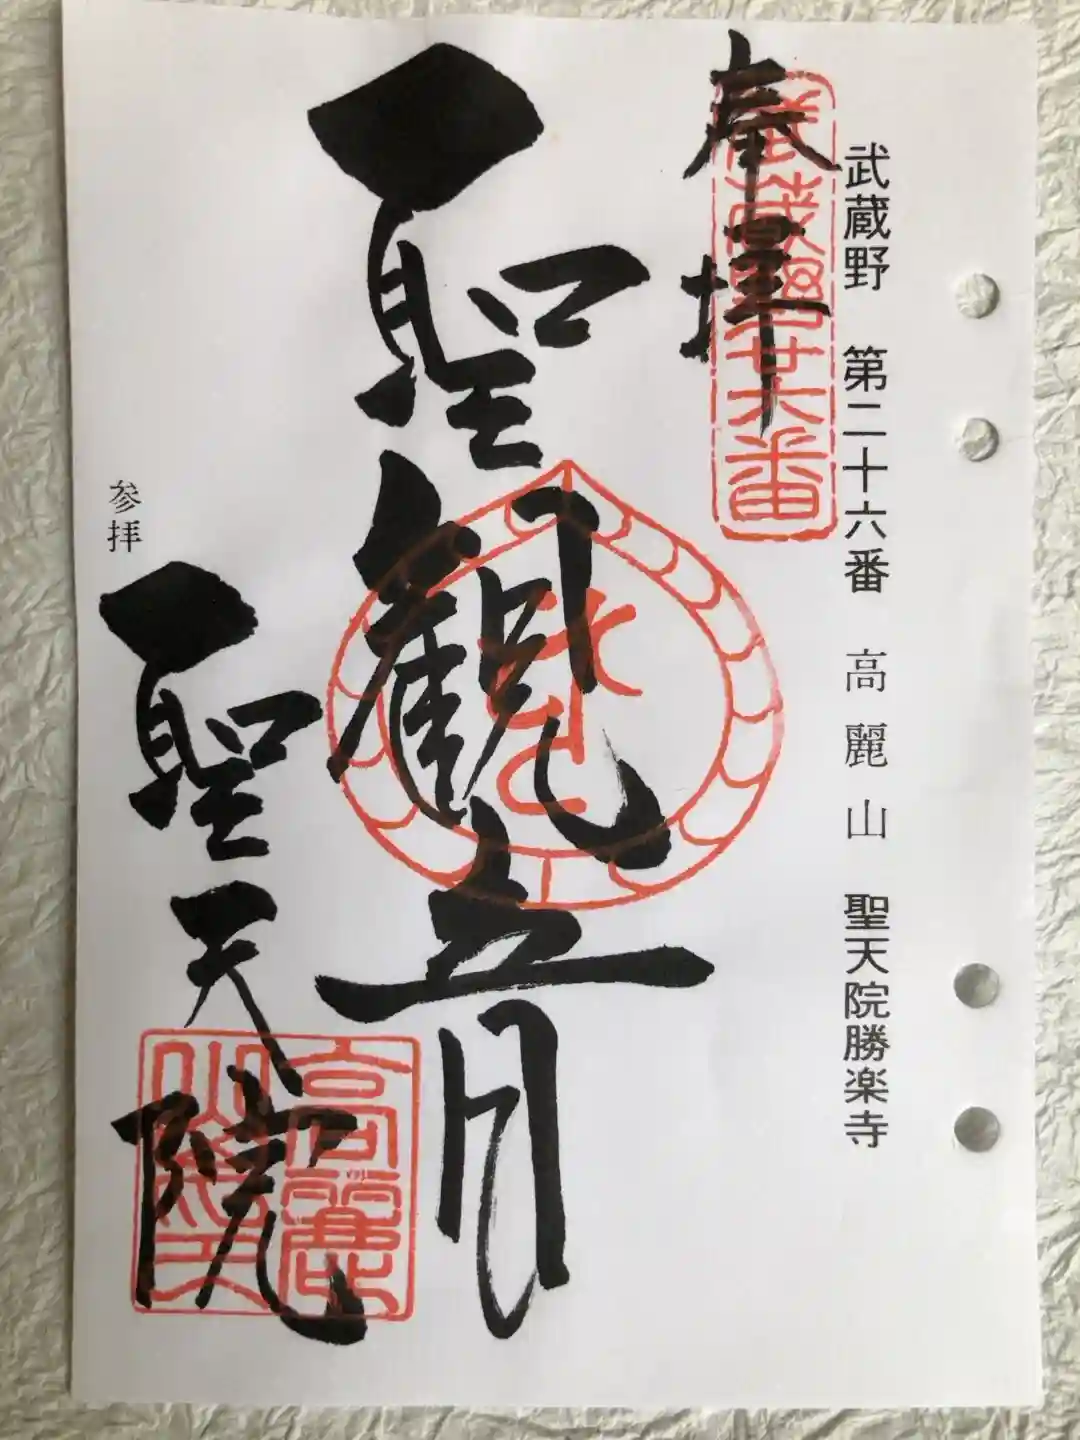 武蔵野 第二十六番 高麗山 聖天院勝楽寺
奉拝
武蔵野廿六番
聖観音
参拝
聖天院
高麗